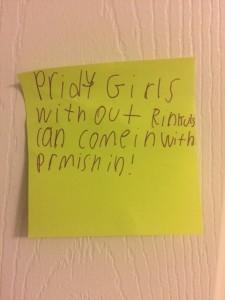 Pridy Girls
without
can comein with
prmishin!